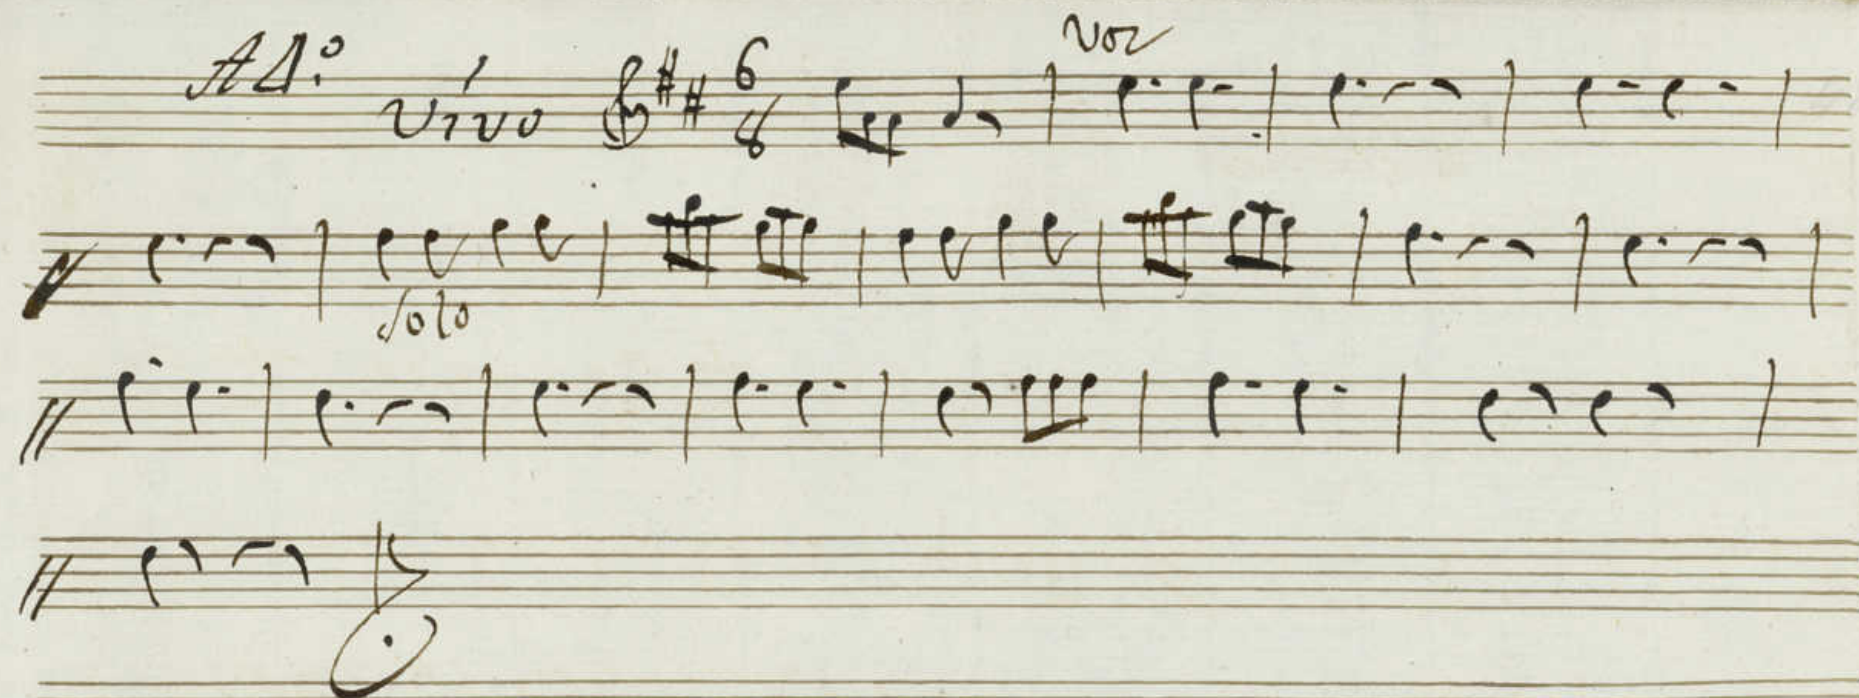 All.º
Vivo
6
8
Voz
Solo